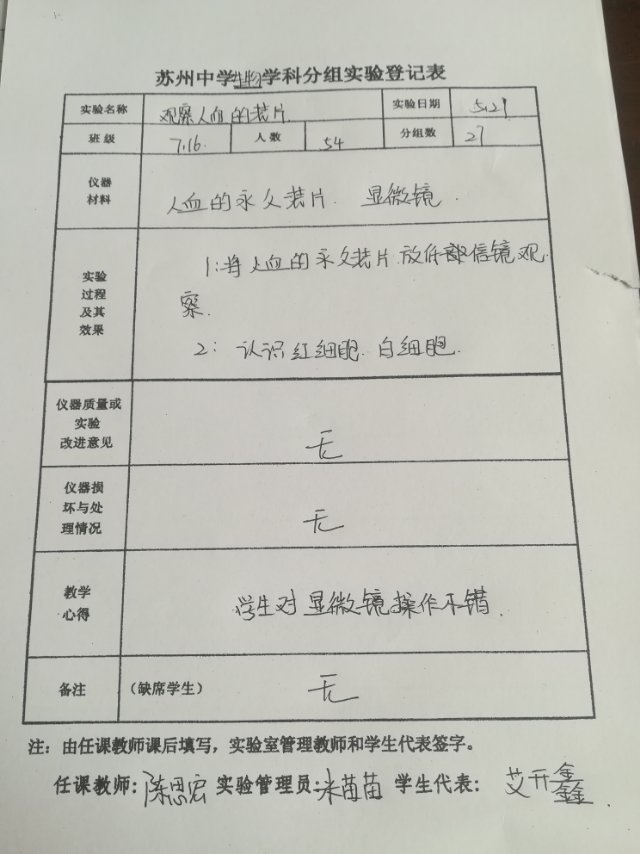 苏州中学生物学科分组实验登记表
实验名称 观察人血的装片 实验日期 5.29
班级 7.16. 人数 54 分组数 27
仪器
材料
人血的永久装片. 显微镜.
实验
过程
及其
效果
1:将人血的永久装片放在显微镜观
察.
2: 认识红细胞. 白细胞.
仪器质量或
实验
改进意见
无
仪器损
坏与处
理情况
无
教学
心得
学生对显微镜操作不错.
备注 (缺席学生) 无
注:由任课教师课后填写,实验室管理教师和学生代表签字。
任课教师:陈思宏 实验管理员:米苗苗 学生代表: 艾开鑫